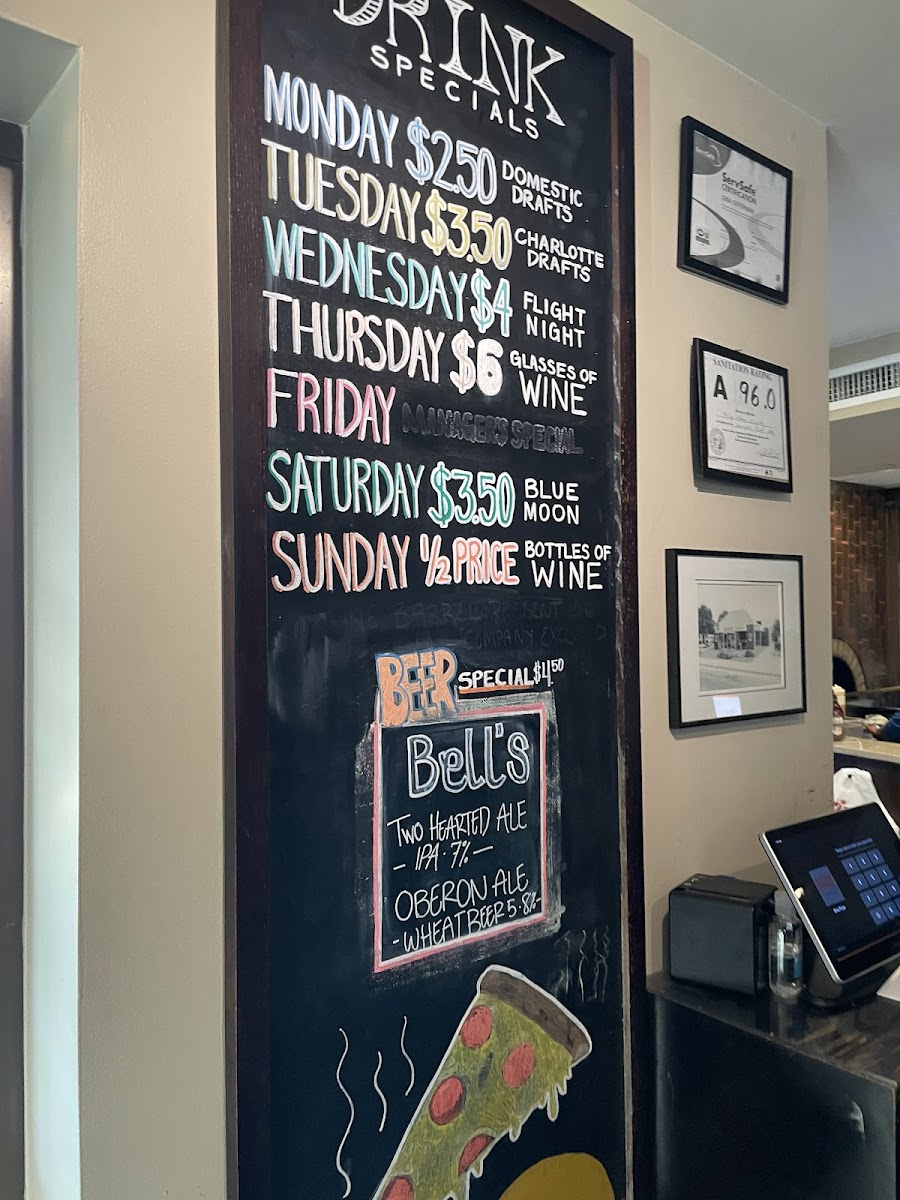 DRINK
SPECIALS
MONDAY $2.50 DOMESTIC DRAFTS
TUESDAY $3.50 CHARLOTTE DRAFTS
WEDNESDAY $4 FLIGHT NIGHT
THURSDAY $6 GLASSES OF WINE
FRIDAY MANAGER'S SPECIAL
SATURDAY $3.50 BLUE MOON
SUNDAY 1/2 PRICE BOTTLES OF WINE
COMPANY
BEER SPECIAL $4.50
Bell's
TWO HEARTED ALE
- IPA · 7% -
OBERON ALE
- WHEAT BEER 5.8% -
ServSafe
ServSafe
CERTIFICATION
SANITATION RATING
A 96.0